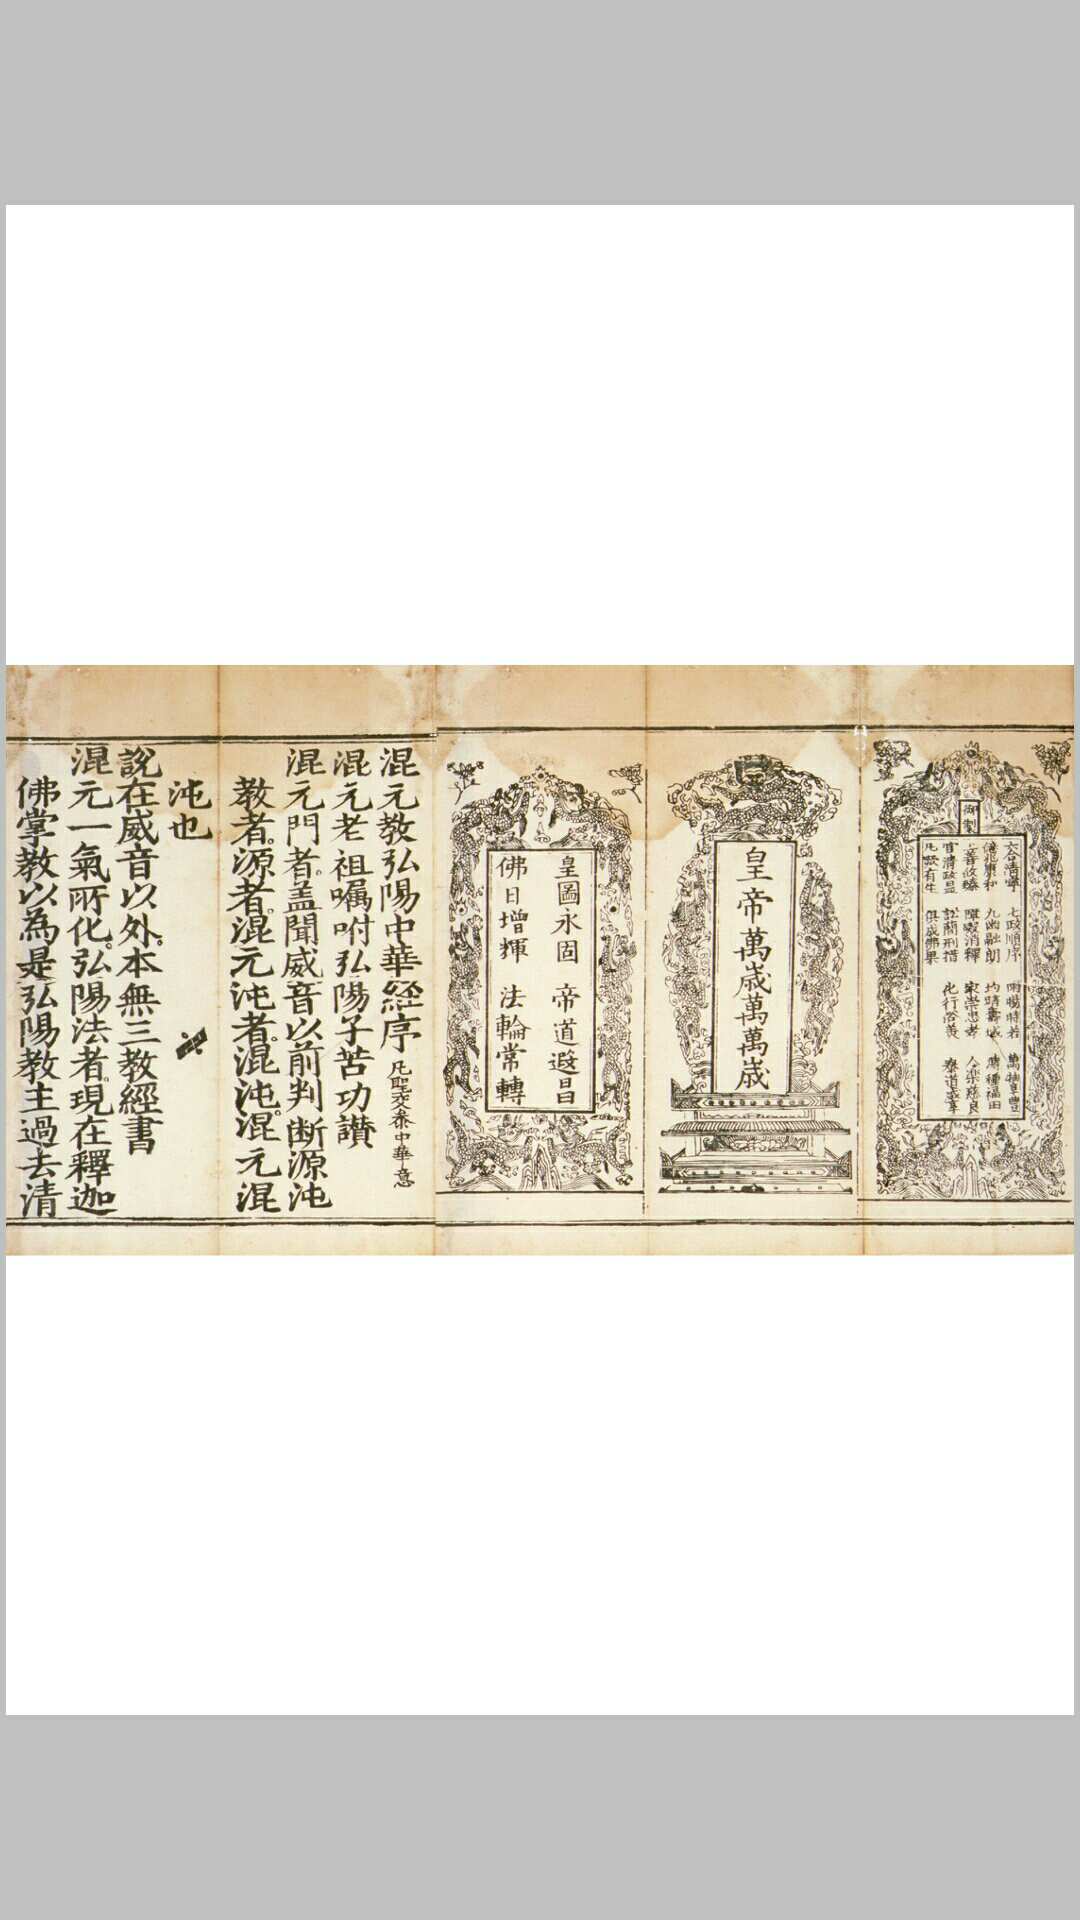 御制
六合清寧 七政順序 雨暘時若 萬物阜豐
億兆康和 九幽融朗 均躋壽域 廣種福田
上善攸臻 障礙消釋 家崇忠孝 人樂慈良
官清政 訟簡刑措 化行俗美 泰道咸亨
凡厥有生 俱成佛果
皇帝萬歳萬萬歳
皇圖永固 帝道遐昌
佛日增輝 法輪常轉
混元教弘陽中華経序 凡聖交參中華意
混元老祖囑咐弘陽子苦功讚
混元門者。盖聞威音以前判断源沌
教者。源者。混元沌者。混沌。混元混
沌也
說在威音以外。本無三教經書
混元一氣所化。弘陽法者。現在釋迦
佛掌教以為是弘陽教主過去清